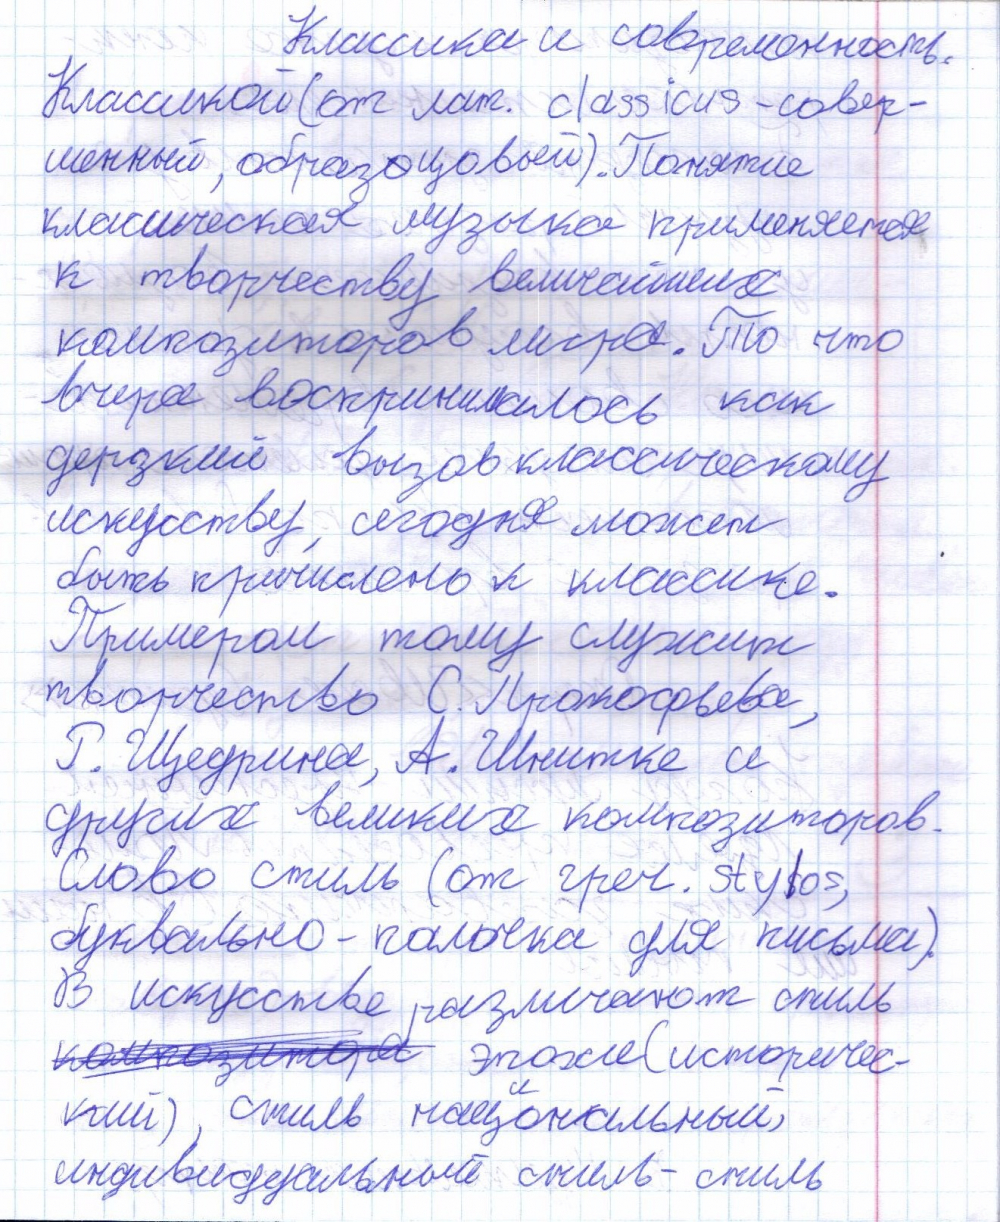 Классика и современность.
Классикой (от лат. classicus - совер-
шенный, образоцовый). Понятие
классическая музыка применяется
к творчеству величайших
композиторов мира. То что
вчера воспринималось как
дерзкий вызов классическому
искусству, сегодня может
быть причислено к классике.
Примером тому служит
творчество С. Прокофьева,
Г. Щедрина, А. Шнитке и
других великих композиторов.
Слово стиль (от греч. stylos,
буквально - палочка для письма).
В искусстве различают стиль
композитора эпохи (историчес-
кий), стиль национальный,
индивидуальный стиль - стиль